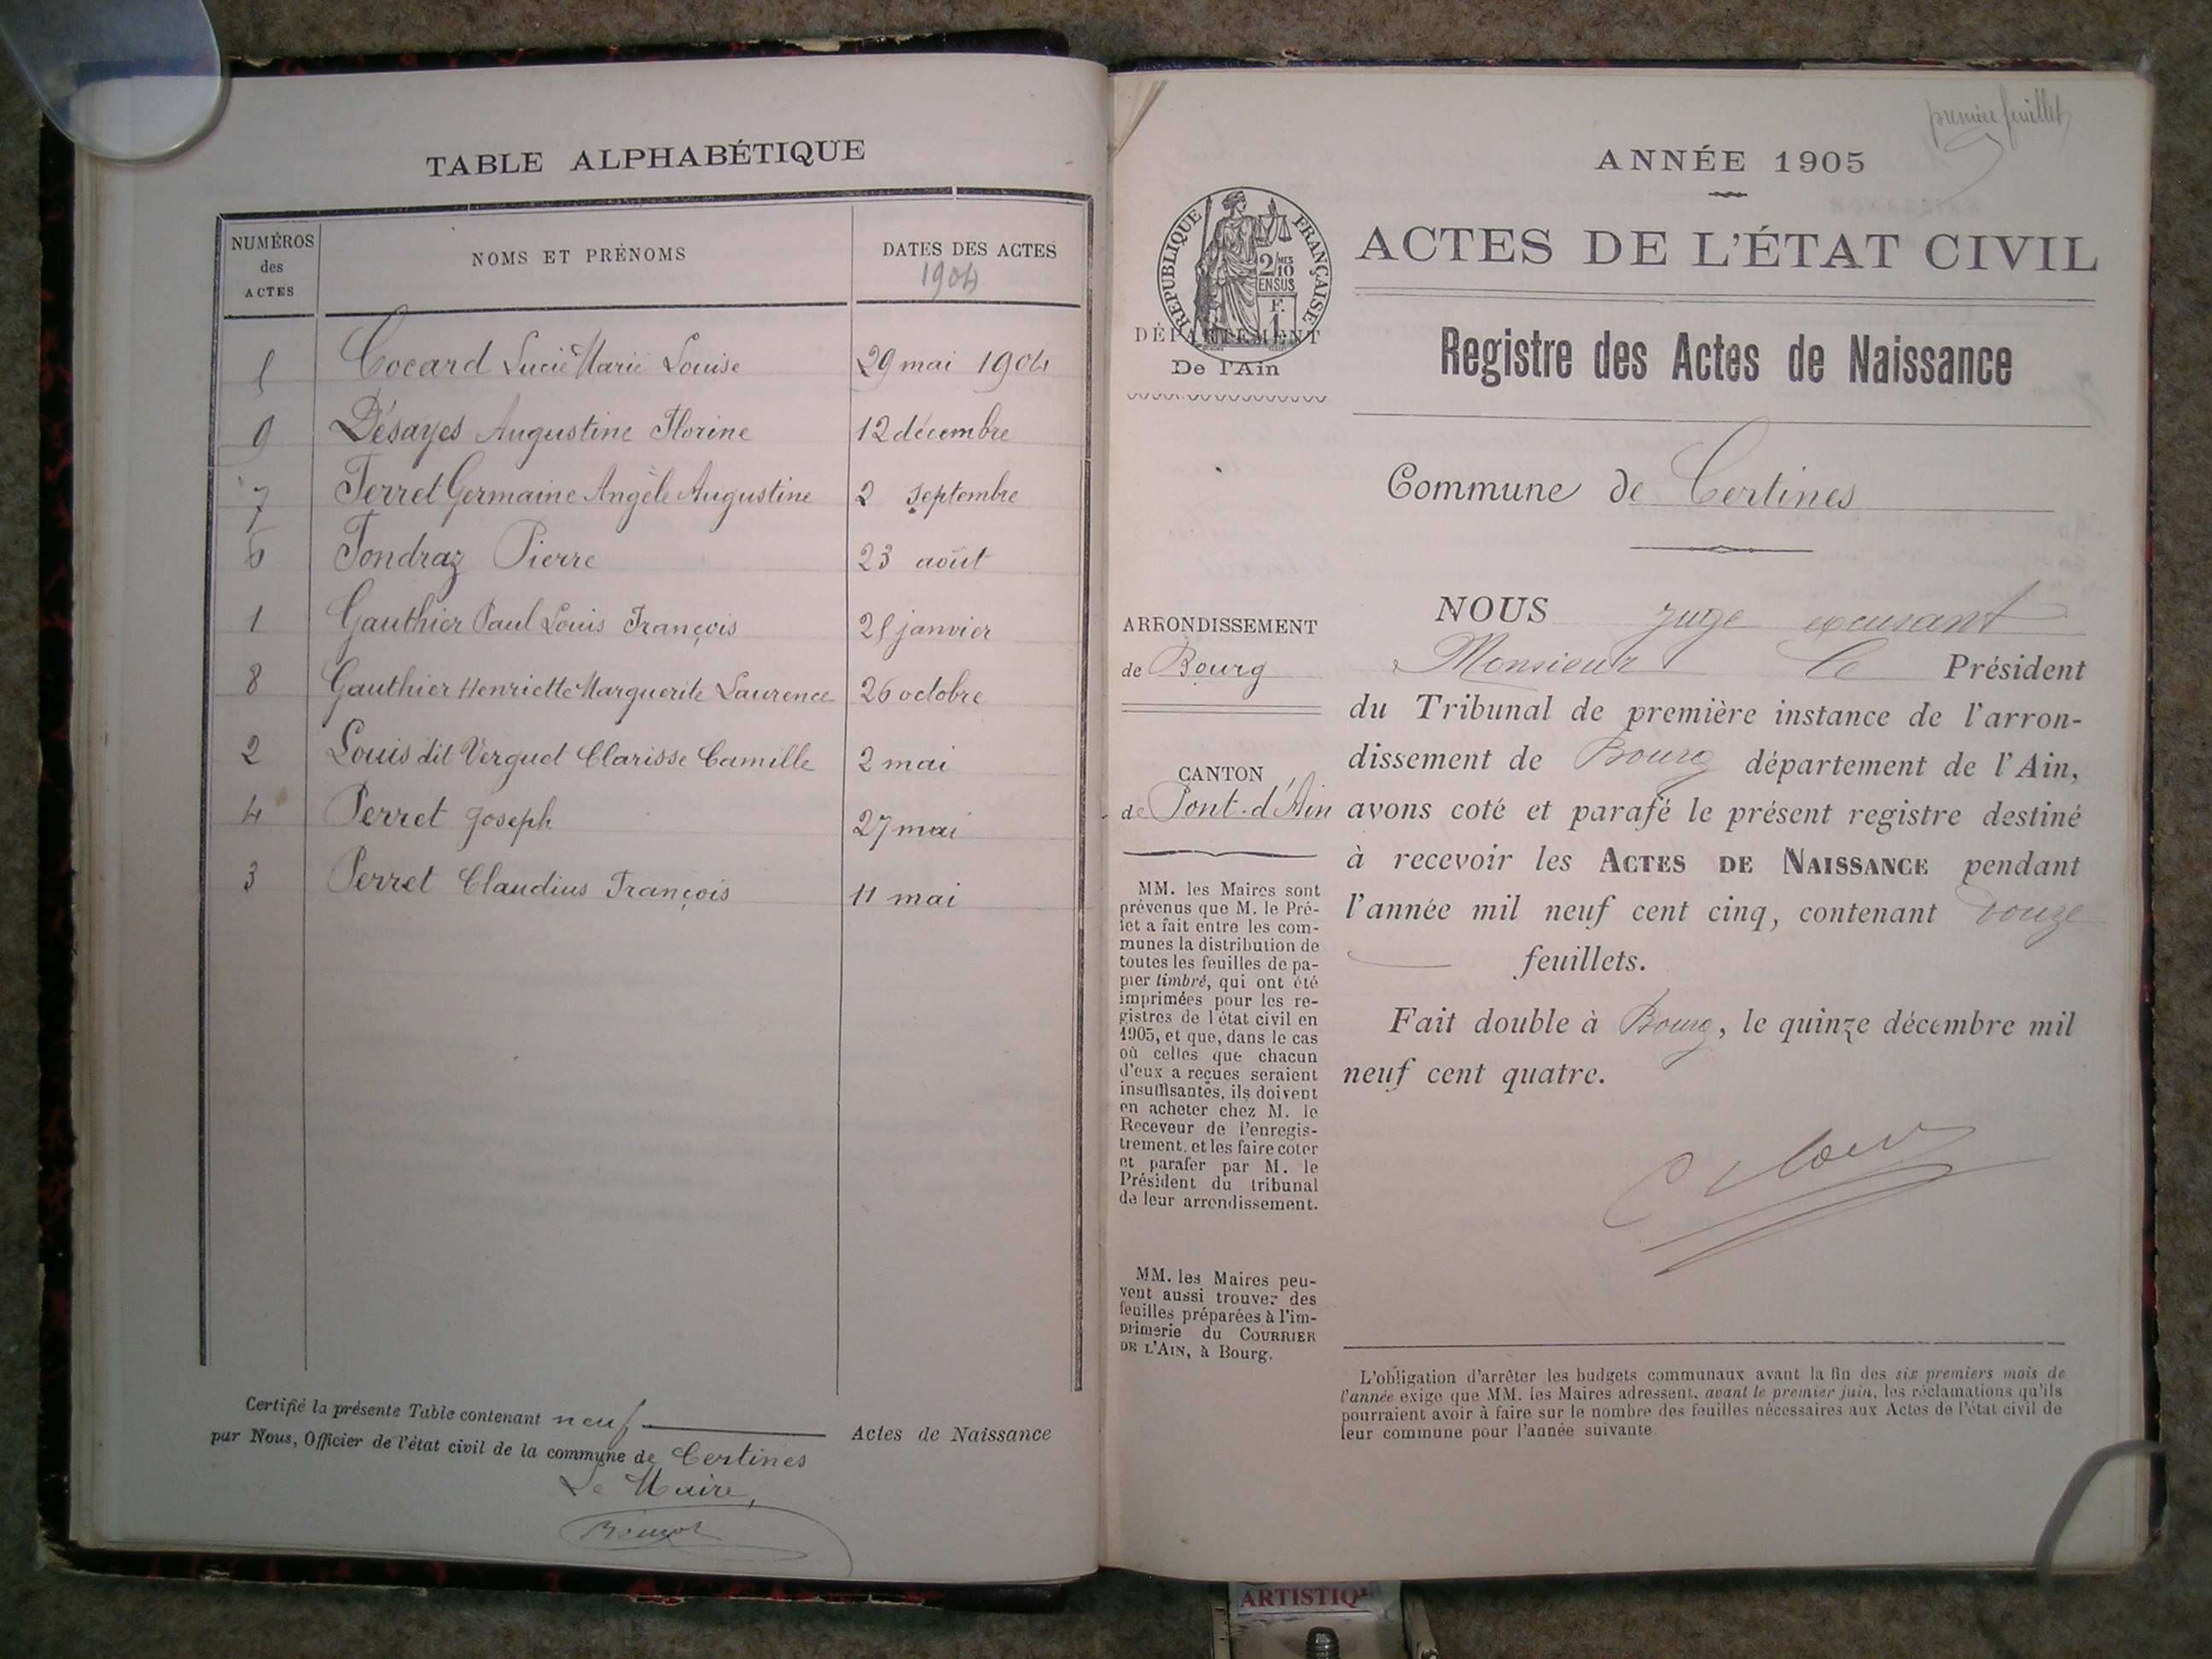 TABLE ALPHABÉTIQUE
NUMÉROS des ACTES
NOMS ET PRÉNOMS
DATES DES ACTES
1904
5 Cocard Lucie Marie Louise 29 mai 1904
9 Désayes Augustine Florine 12 décembre
7 Ferret Germaine Angèle Augustine 2 septembre
6 Fondraz Pierre 23 août
1 Gauthier Paul Louis François 25 janvier
8 Gauthier Henriette Marguerite Laurence 26 octobre
2 Louis dit Verguet Clarisse Camille 2 mai
4 Perret Joseph 27 mai
3 Perret Claudius François 11 mai
Certifié la présente Table contenant neuf Actes de Naissance
par Nous, Officier de l'état civil de la commune de Certines
Le Maire,
première feuillet
ANNÉE 1905
ACTES DE L'ÉTAT CIVIL
RÉPUBLIQUE FRANÇAISE
2/10 MES
EN SUS
F.
1
DÉPARTEMENT
De l'Ain
Registre des Actes de Naissance
Commune de Certines
ARRONDISSEMENT
de Bourg
CANTON
de Pont-d'Ain
MM. les Maires sont
prévenus que M. le Pré-
fet a fait entre les com-
munes la distribution de
toutes les feuilles de pa-
pier timbré, qui ont été
imprimées pour les re-
gistres de l'état civil en
1905, et que, dans le cas
où celles que chacun
d'eux a reçues seraient
insuffisantes, ils doivent
en acheter chez M. le
Receveur de l'enregis-
trement, et les faire coter
et parafer par M. le
Président du tribunal
de leur arrondissement.
MM. les Maires peu-
vent aussi trouver des
feuilles préparées à l'im-
primerie du COURRIER
DE L'AIN, à Bourg.
NOUS juge excusant
Monsieur le Président
du Tribunal de première instance de l'arron-
dissement de Bourg département de l'Ain,
avons coté et parafé le présent registre destiné
à recevoir les ACTES DE NAISSANCE pendant
l'année mil neuf cent cinq, contenant douze
feuillets.
Fait double à Bourg, le quinze décembre mil
neuf cent quatre.
L'obligation d'arrêter les budgets communaux avant la fin des six premiers mois de
l'année exige que MM. les Maires adressent, avant le premier juin, les réclamations qu'ils
pourraient avoir à faire sur le nombre des feuilles nécessaires aux Actes de l'état civil de
leur commune pour l'année suivante
ARTISTIQ